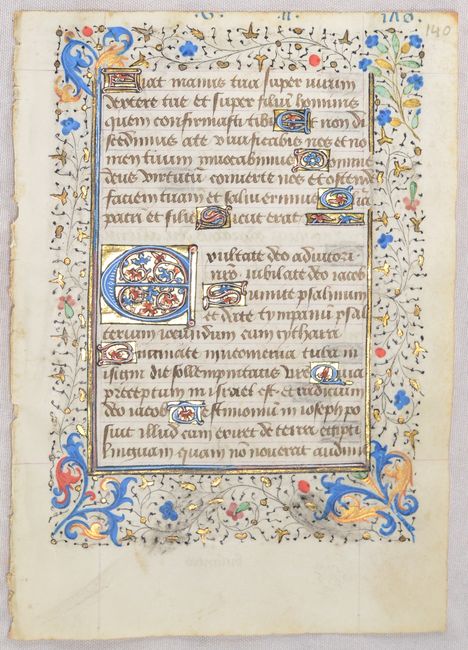 140
Fiat manus tua super virum
dextere tue et super filiũ hominis
quem confirmasti tibi Et non di
scedimus a te vivificabis nos et no
men tuum invocabimus Domine
deus virtutũ converte nos et ostende
faciem tuam et salvi erimus Glīa
patri et filio Sicut erat
Exultate deo adiutori
nrō iubilate deo iacob
Sumite psalmum
et date tympanũ psal
terium iocundum cum cythara
Buccinate in neomenia tuba in
insigni die sollempnitatis vre Quia
preceptum in israel est et iudicium
deo iacob Testimonium in ioseph po
suit illud cum exiret de terra egipti
linguam quam nō noverat audivit